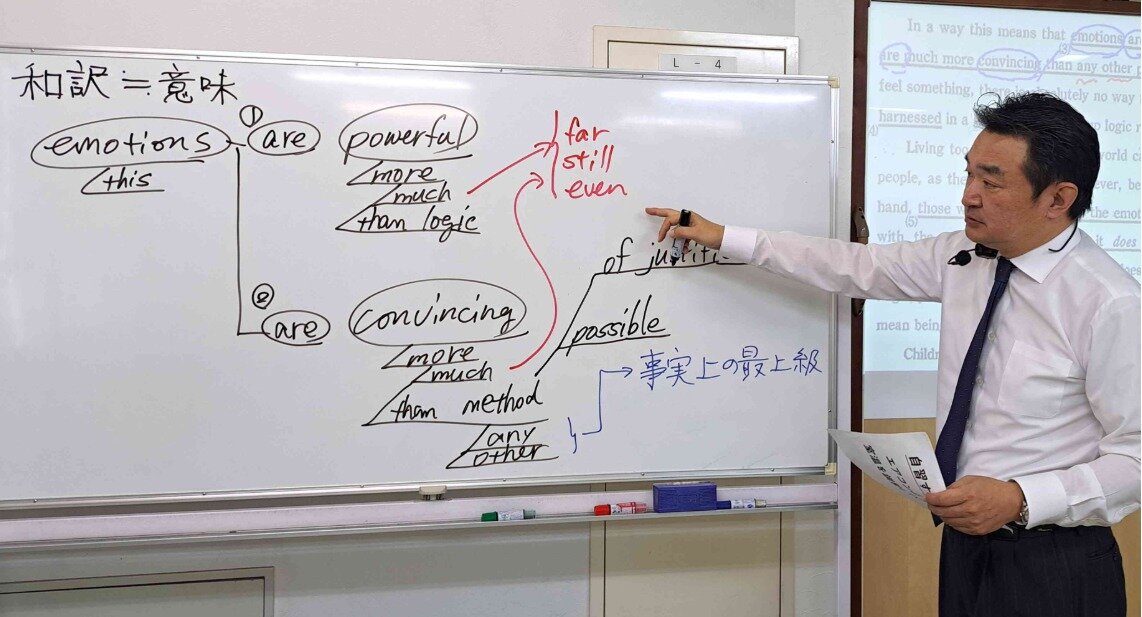 和訳≒意味
emotions
this
①
are
powerful
more
much
than logic
far
still
even
②
are
convincing
more
much
than method
any
other
of
possible
事実上の最上級
L-4
In a way this means that emotions
are much more convincing than any other
feel something, there is absolutely no way
harnessed in a logic
Living too world
people, as the ever,
hand, those the emo
(5)
with does
mean bein
Childr
自習